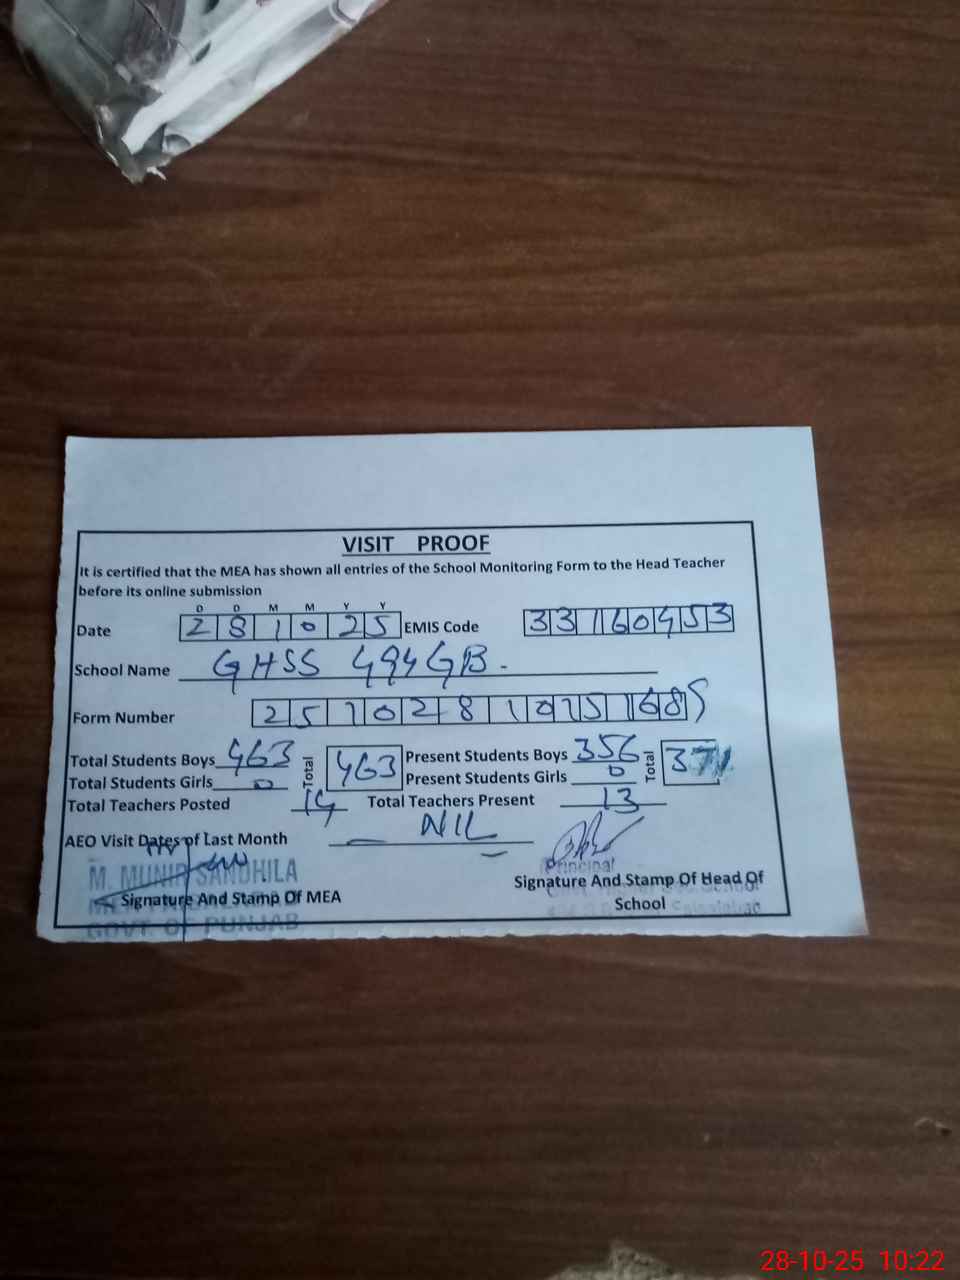 VISIT PROOF
It is certified that the MEA has shown all entries of the School Monitoring Form to the Head Teacher
before its online submission
D D M M Y Y
Date 281025 EMIS Code 33160453
School Name GHSS 494GB.
Form Number 25102810151685
Total Students Boys 463 Total 463 Present Students Boys 356 Total 371
Total Students Girls 0 Present Students Girls 0
Total Teachers Posted 14 Total Teachers Present 13
AEO Visit Dates of Last Month NIL
M. MUNIR SANDHILA
Principal
Signature And Stamp Of MEA
Signature And Stamp Of Head Of
School
GOVT. OF PUNJAB
28-10-25 10:22